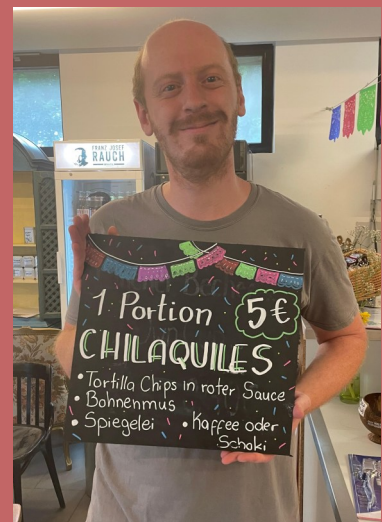 FRANZ JOSEF
RAUCH
1 Portion
5€
CHILAQUILES
• Tortilla Chips in roter Sauce
• Bohnenmus
• Spiegelei
• Kaffee oder
Schoki